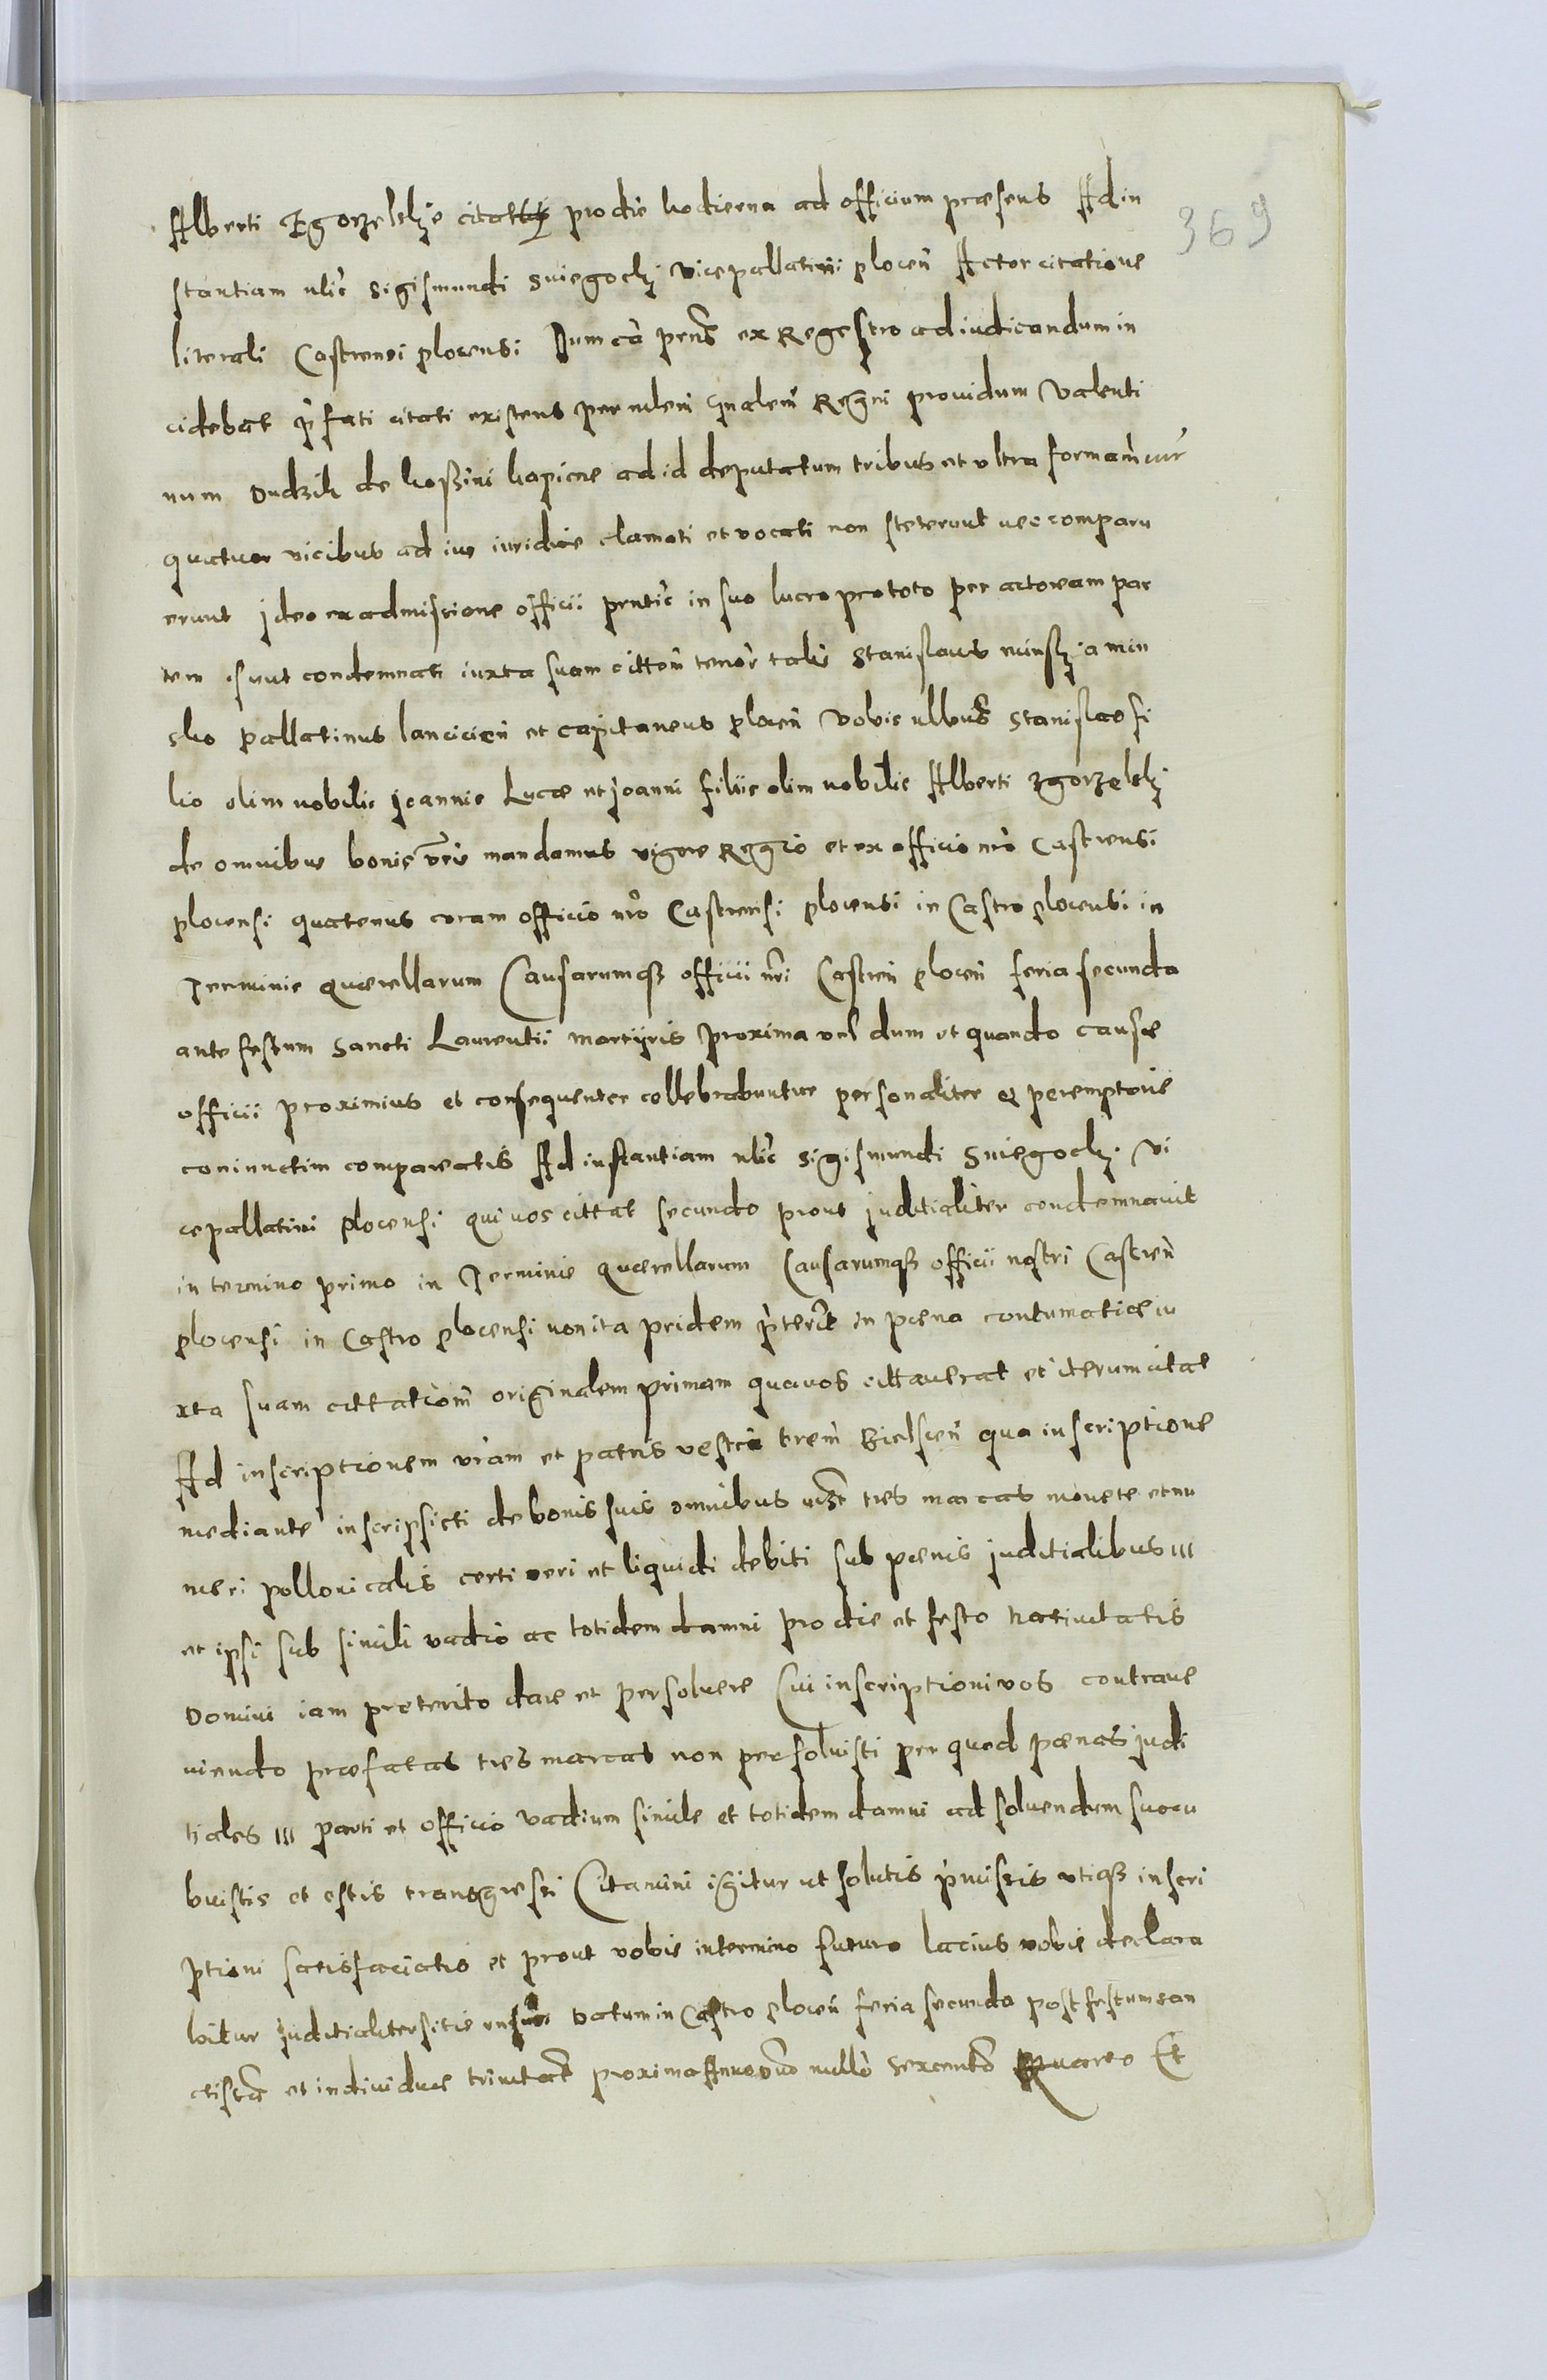 Alberti Zgorzelskie citattos pro die hodierna ad officium præsens Ad in
369
stantiam nlis Sigismundi Sniegocky Vicepallatini plocen Actor citatione
literali Castrensi plocensi Dum ca pens ex Regestro ad iudicandum in
cidebat pfati citati existens per mlem Gnalem Regni prouidum Valenti
num Dudzik de koßini kapicne ad id deputatum tribus et vltra formam iur
quatuor vicibus ad ius iuridice clamati et vocati non steterunt nec comparu
erunt jdeo ex admissione officii pntis in suo lucro pro toto per actoream par
tem sunt condemnati iuxta suam cittom tenor talis Stanislaus minsky a min
sko Pallatinus lancicien et capitaneus plocen Vobis nlbus Stanislao fi
lio olim nobilis joannis Lucæ et joanni filiis olim nobilis Alberti Zgorzelsky
de omnibus bonis vris mandamus vigore Regio et ex officio nro Castrensi
plocensi quatenus coram officio nro Castrensi plocensi in Castro plocensi in
Terminis quærellarum Causarumqz officii nri Castren plocen feria secunda
ante festum Sancti Laurentii martyris proxima vel dum et quando causæ
officii proximius et consequenter cellebrabuntur personaliter et peremptorie
coniunctim compareatis Ad instantiam nlis Sigismundi Sniegocky Vi
cepallatini plocensi qui vos cittat secundo prout juditialiter condemnauit
in termino primo in Terminis quærellarum Causarumqz officii nostri Castren
plocensi in Castro plocensi non ita pridem pterit in pæna contumatiæ iu
xta suam cittationem originalem primam qua vos cittauerat et iterum citat
Ad inscriptionem vram et patris vestri trem Bielscen qua inscriptione
mediante inscripsisti de bonis suis omnibus vist tres marcas monete et nu
meri pollonicalis certi veri et liquidi debiti sub pænis juditialibus III
et ipsi sub simili vadio ac totidem damni pro die et festo Natiuitatis
Domini iam preterito dare et persoluere Cui inscriptioni vos contraue
niendo præfatas tres marcas non persoluisti per quod pænas judi
tiales III parti et officio vadium simile et totidem damni ad soluendum succu
buistis et estis transgressi Citamini igitur ut solutis pmissis vtiqz inscri
ptioni satisfaciatis et prout vobis in termino futuro lacius vobis declara
bitur juditialiter sitis Datum in Castro plocen feria secunda post festum san
ctissæ et indiuiduæ trinitatis proxima Anno dno millo sexcento Quarto Et